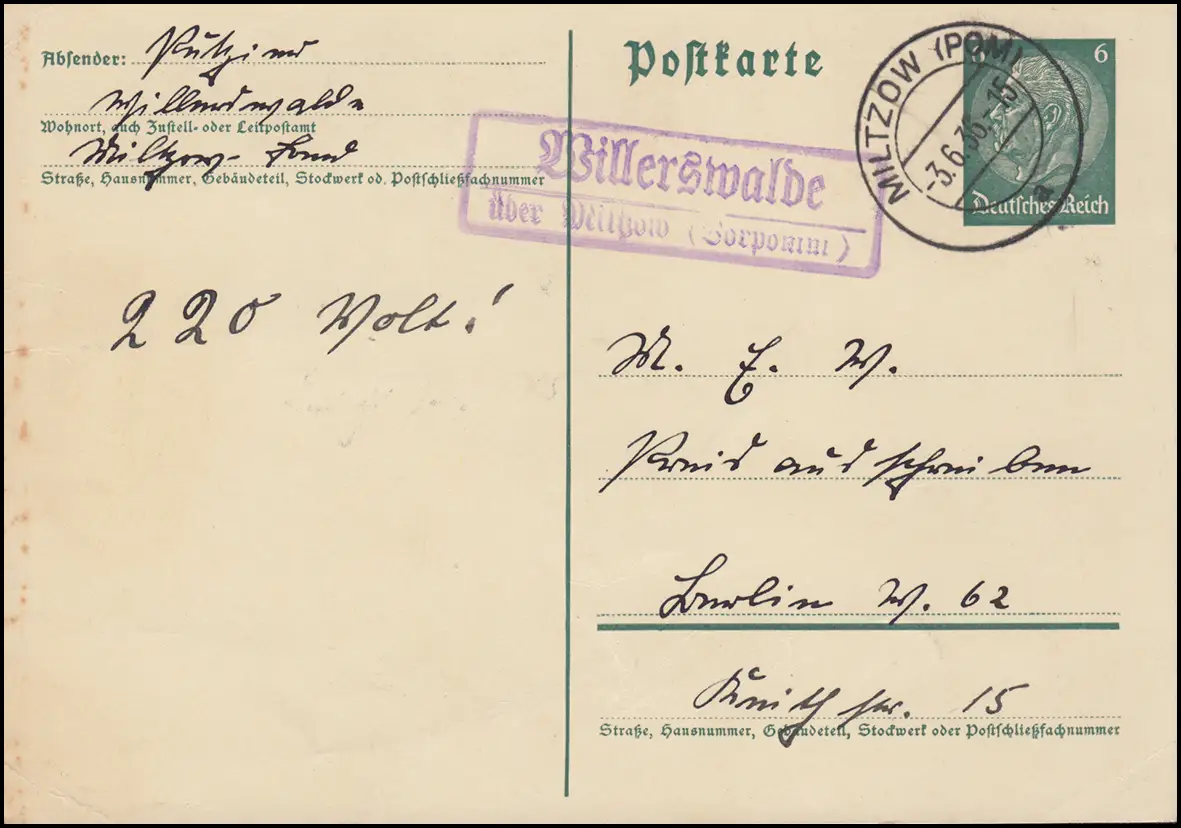 Absender:
Willerswalde
Wohnort, auch Zustell- oder Leitpostamt
Miltzow - Land
Straße, Hausnummer, Gebäudeteil, Stockwerk od. Postschließfachnummer
220 Volt!
Postkarte
MILTZOW (POM)
-3.6.36, 7-15
a
6
Deutsches Reich
Willerswalde
über Miltzow (Vorpomm)
M. E. W.
Preisausschreiben
Berlin W. 62
Keithstr. 15
Straße, Hausnummer, Gebäudeteil, Stockwerk oder Postschließfachnummer